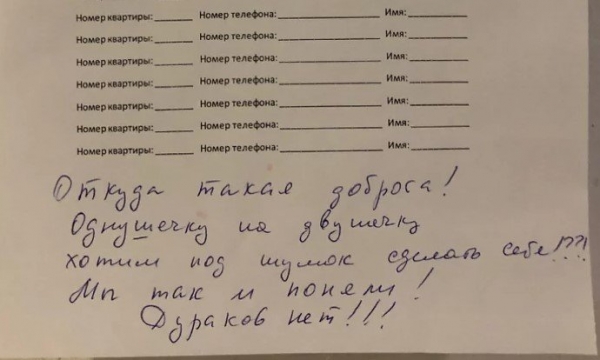 Номер квартиры:______ Номер телефона:________________ Имя:_________
Номер квартиры:______ Номер телефона:________________ Имя:_________
Номер квартиры:______ Номер телефона:________________ Имя:_________
Номер квартиры:______ Номер телефона:________________ Имя:_________
Номер квартиры:______ Номер телефона:________________ Имя:_________
Номер квартиры:______ Номер телефона:________________ Имя:_________
Номер квартиры:______ Номер телефона:________________ Имя:_________
Откуда такая доброса!
Однушечку на двушечку
хотим под шумок сделать себе!??!
Мы так и поняли!
Дураков нет!!!